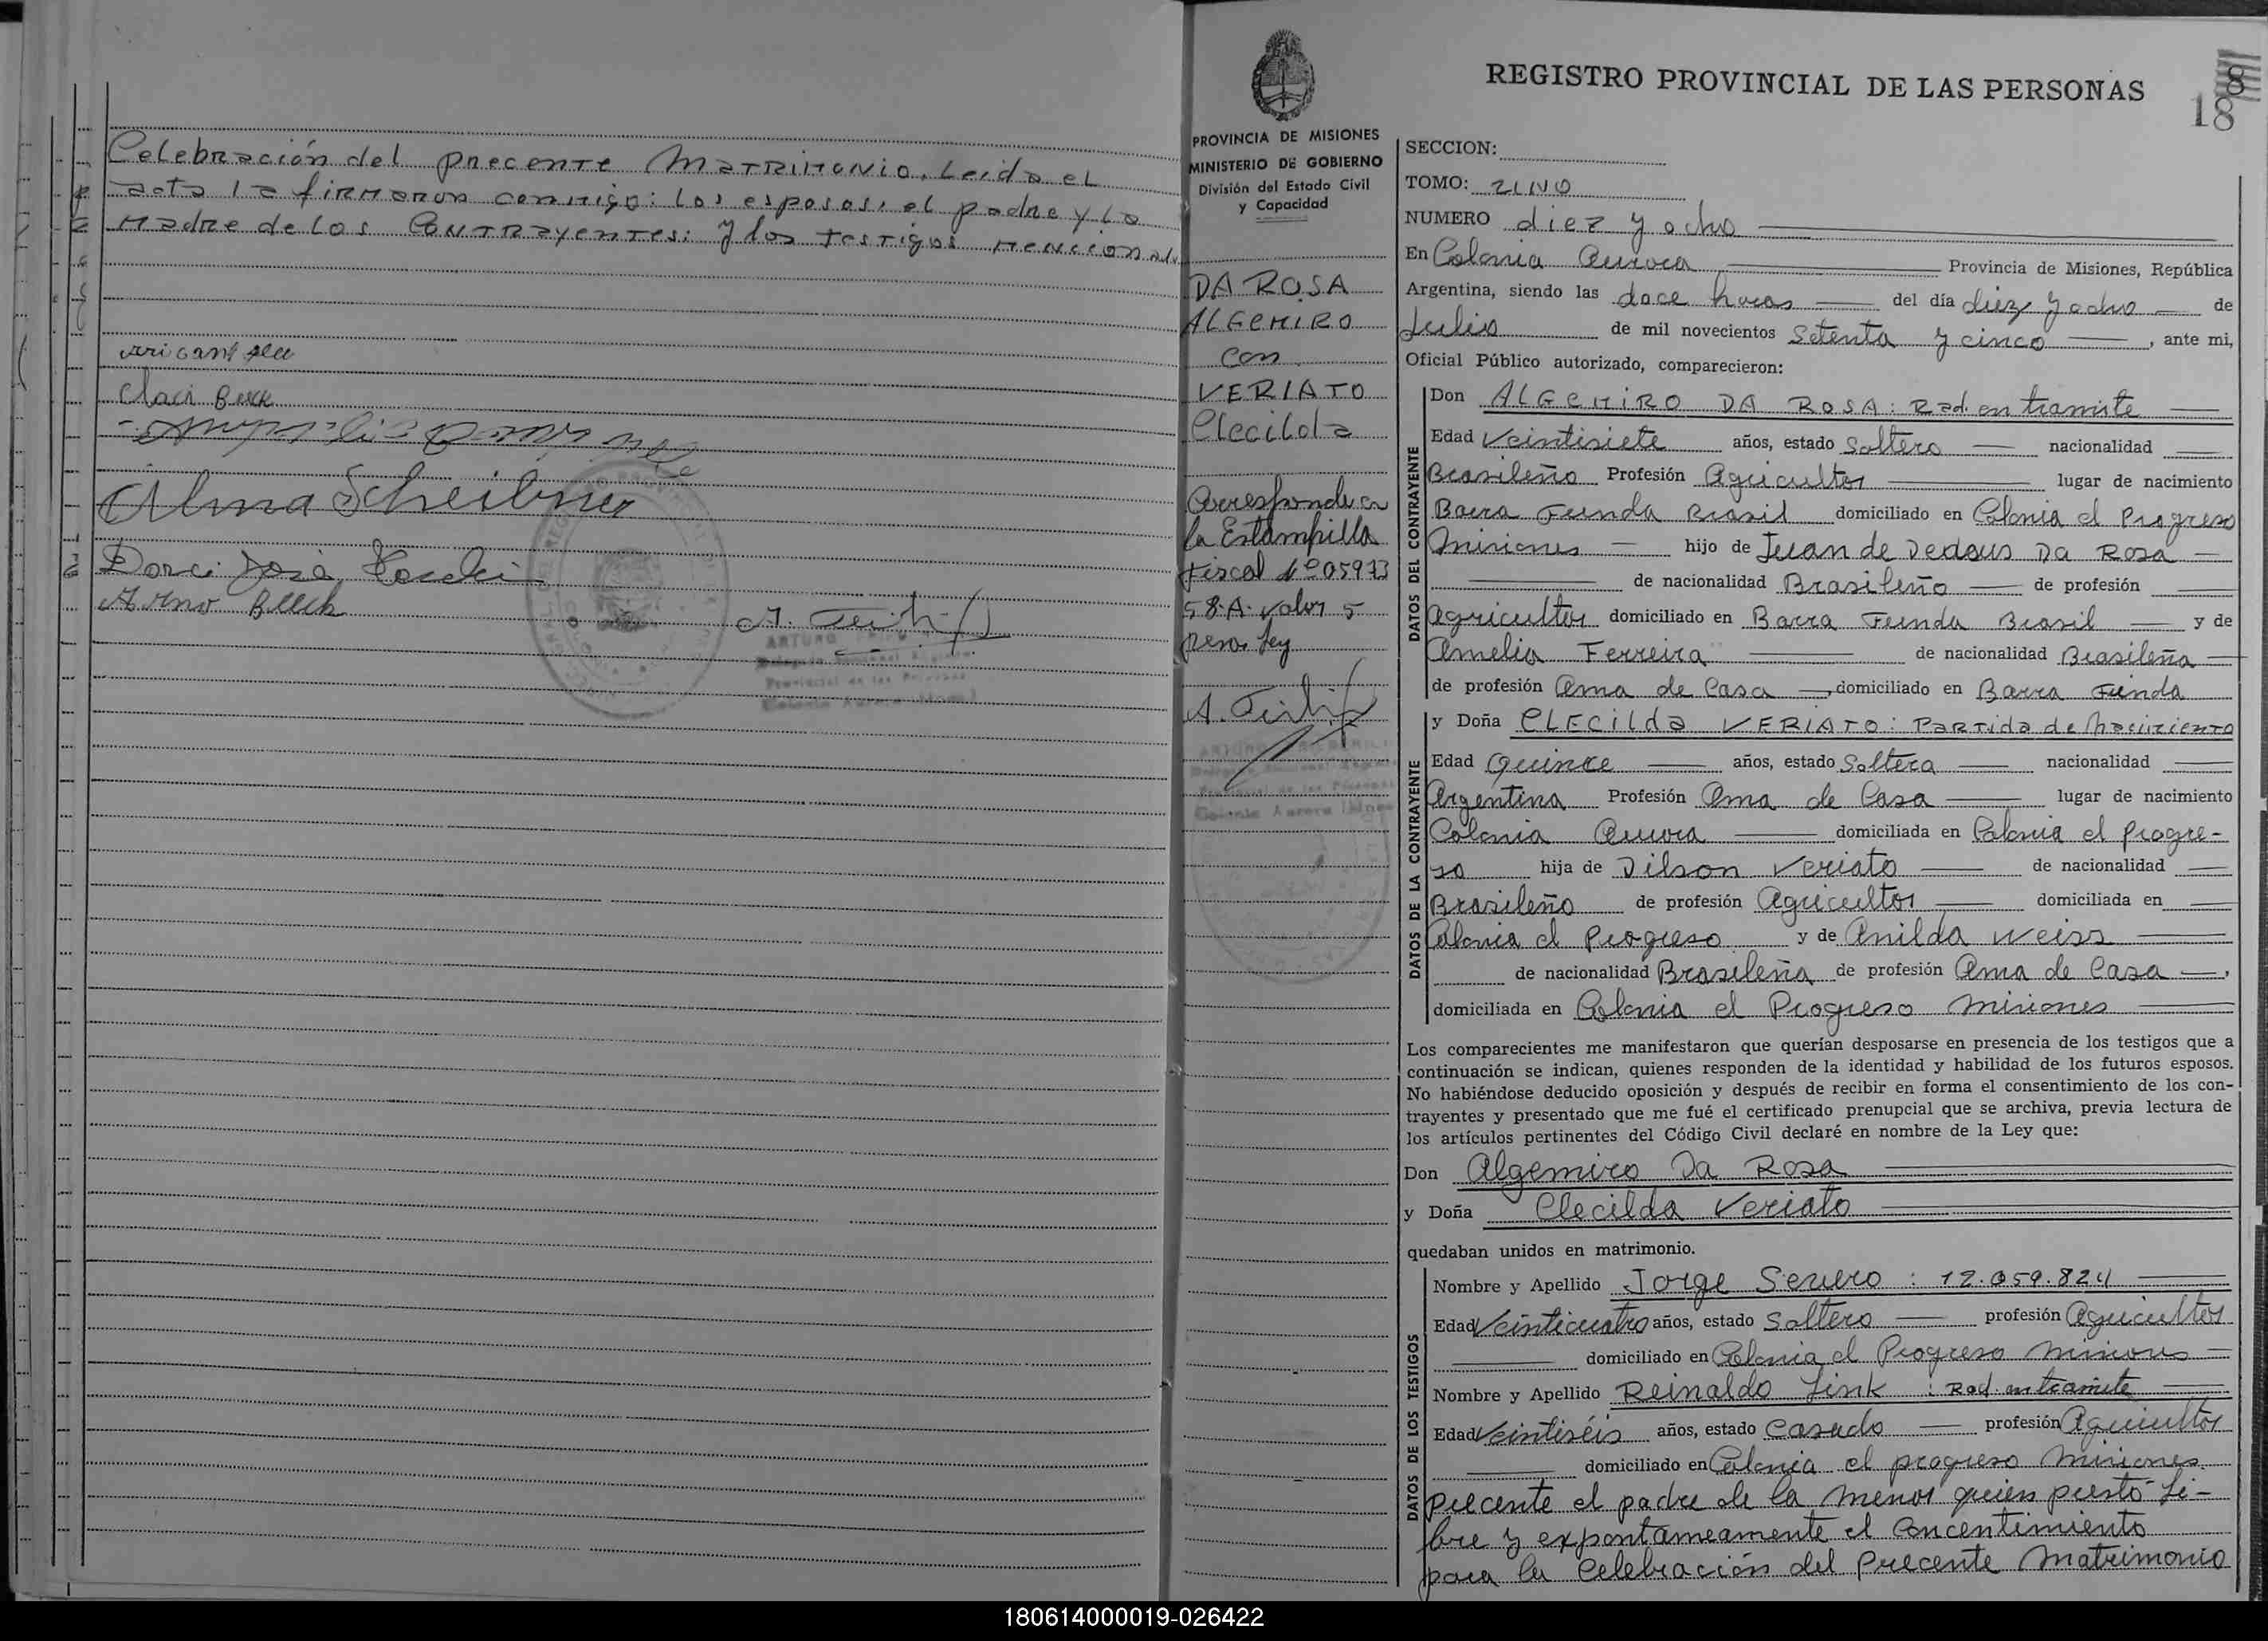 Celebración del precente Matrimonio. Leida el
acta la firmaron conmigo: los esposos, el padre y la
Madre de los Contrayentes: y los testigos mencionad
Claci Beck
Alma Scheibner
Dorci José
Arno Beck
ARTURO
Provincial de las Personas
Colonia Aurora
PROVINCIA DE MISIONES
MINISTERIO DE GOBIERNO
División del Estado Civil
y Capacidad
DA ROSA
ALGEMIRO
con
VERIATO
Clecilda
Corresponde a
la Estampilla
Fiscal Nº 05973
58.A. valor 5
pesos Ley
ARTURO
Colonia Aurora
REGISTRO PROVINCIAL DE LAS PERSONAS
8
18
SECCION:
TOMO: uno
NUMERO diez y ocho
En Colonia Aurora Provincia de Misiones, República
Argentina, siendo las doce horas del día diez y ocho de
Julio de mil novecientos Setenta y cinco, ante mi,
Oficial Público autorizado, comparecieron:
DATOS DEL CONTRAYENTE
Don ALGEMIRO DA ROSA: Rad. en tramite
Edad Veintisiete años, estado Soltero nacionalidad
Brasileño Profesión Agricultor lugar de nacimiento
Barra Funda Brasil domiciliado en Colonia el Progreso
Misiones hijo de Juan de Dedous Da Rosa
de nacionalidad Brasileño de profesión
agricultor domiciliado en Barra Funda Brasil y de
Amelia Ferreira de nacionalidad Brasileña
de profesión Ama de Casa, domiciliado en Barra Funda
DATOS DE LA CONTRAYENTE
y Doña CLECILda VERIATO: Partida de Nacimiento
Edad Quince años, estado Soltera nacionalidad
Argentina Profesión Ama de Casa lugar de nacimiento
Colonia Aurora domiciliada en Colonia el Progre-
so hija de Dilson Veriato de nacionalidad
Brasileño de profesión Agricultor domiciliada en
Colonia el Progreso y de Anilda Weiss
de nacionalidad Brasileña de profesión Ama de Casa,
domiciliada en Colonia el Progreso Misiones
Los comparecientes me manifestaron que querían desposarse en presencia de los testigos que a
continuación se indican, quienes responden de la identidad y habilidad de los futuros esposos.
No habiéndose deducido oposición y después de recibir en forma el consentimiento de los con-
trayentes y presentado que me fué el certificado prenupcial que se archiva, previa lectura de
los artículos pertinentes del Código Civil declaré en nombre de la Ley que:
Don Algemiro Da Rosa
y Doña Clecilda Veriato
quedaban unidos en matrimonio.
DATOS DE LOS TESTIGOS
Nombre y Apellido Jorge Severo : 12.059.824
Edad Veinticuatro años, estado Soltero profesión Agricultor
domiciliado en Colonia el Progreso Misiones
Nombre y Apellido Reinaldo Link : Rad. en tramite
Edad Veintiséis años, estado Casado profesión Agricultor
domiciliado en Colonia el progreso Misiones
Precente el padre de la menor quien prestó Li-
bre y expontameamente el Concentimiento
para la Celebración del Precente Matrimonio
180614000019-026422